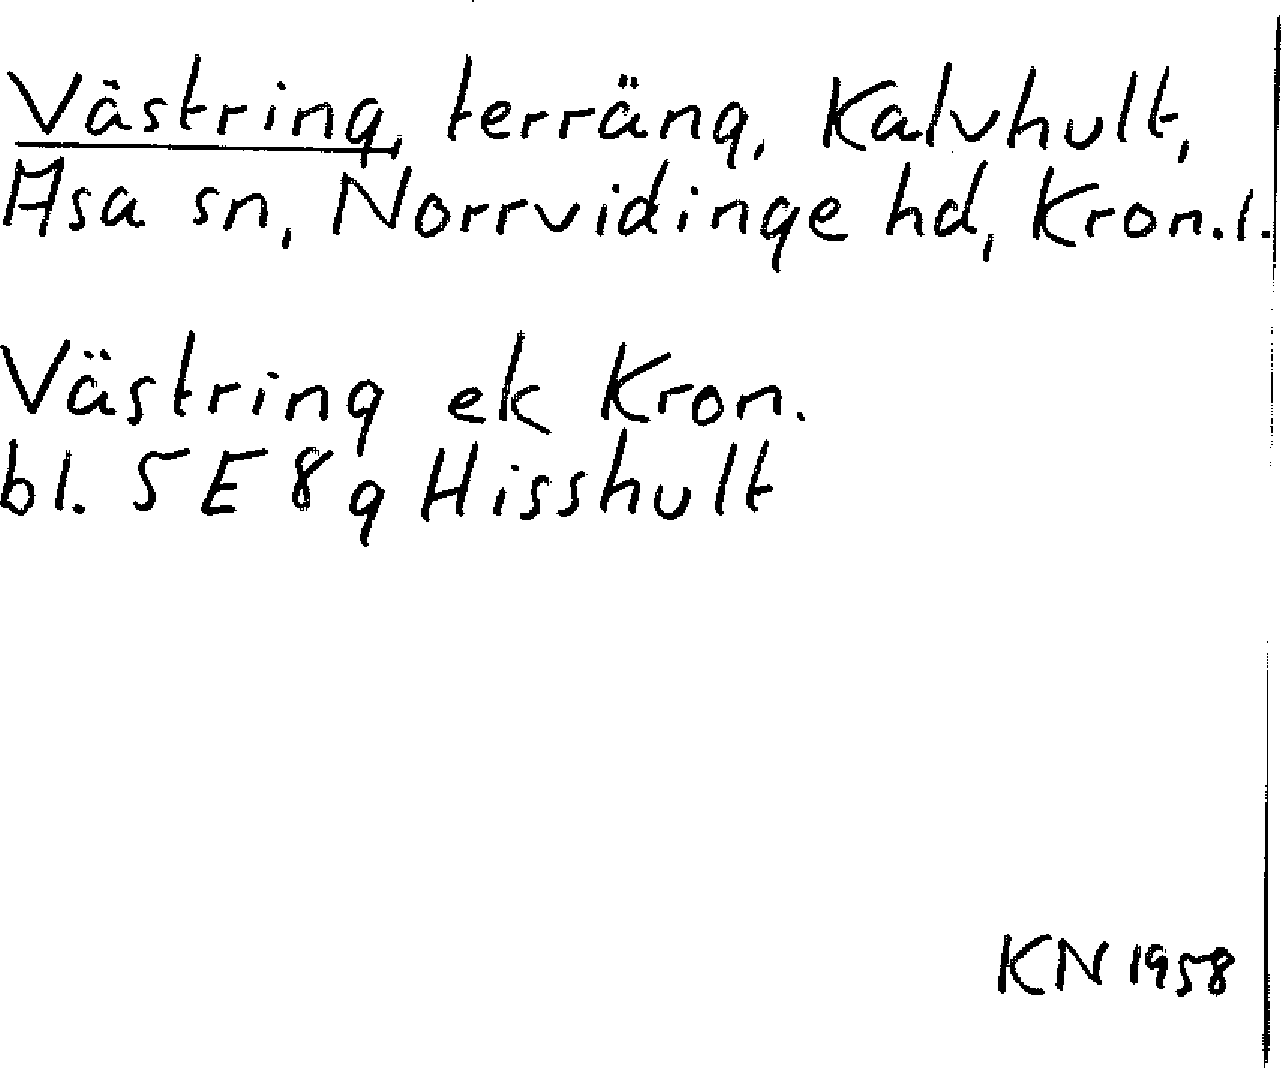 Västring, terräng, Kalvhult,
Asa sn, Norrvidinge hd, Kron.l.
Västring ek Kron.
bl. 5 E 8 g Hisshult
KN 1958